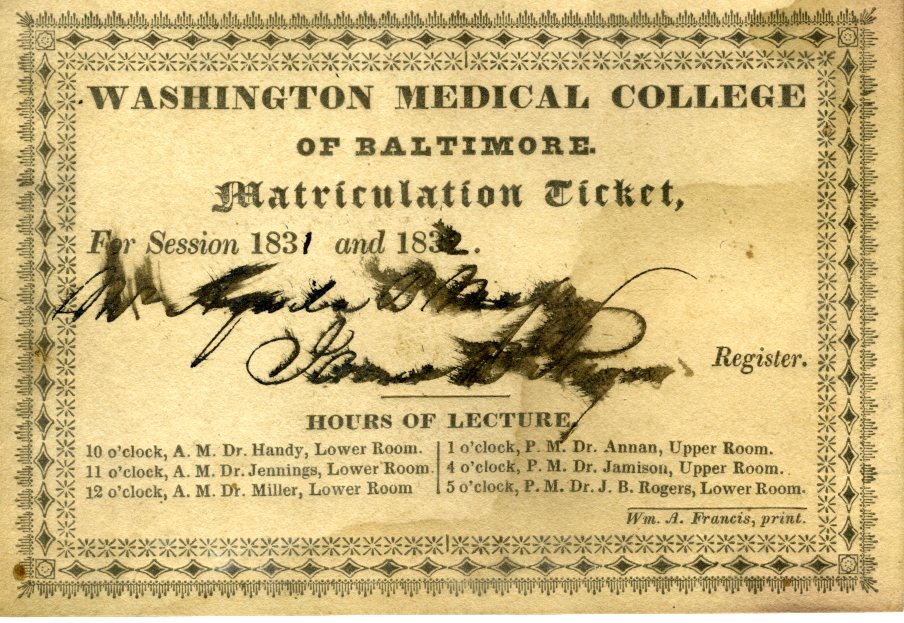 WASHINGTON MEDICAL COLLEGE
OF BALTIMORE.
Matriculation Ticket,
For Session 1831 and 1832.
Mr
Register.
HOURS OF LECTURE,
10 o'clock, A. M. Dr. Handy, Lower Room.
11 o'clock, A. M. Dr. Jennings, Lower Room.
12 o'clock, A. M. Dr. Miller, Lower Room
1 o'clock, P. M. Dr. Annan, Upper Room.
4 o'clock, P. M. Dr. Jamison, Upper Room.
5 o'clock, P. M. Dr. J. B. Rogers, Lower Room.
Wm. A. Francis, print.